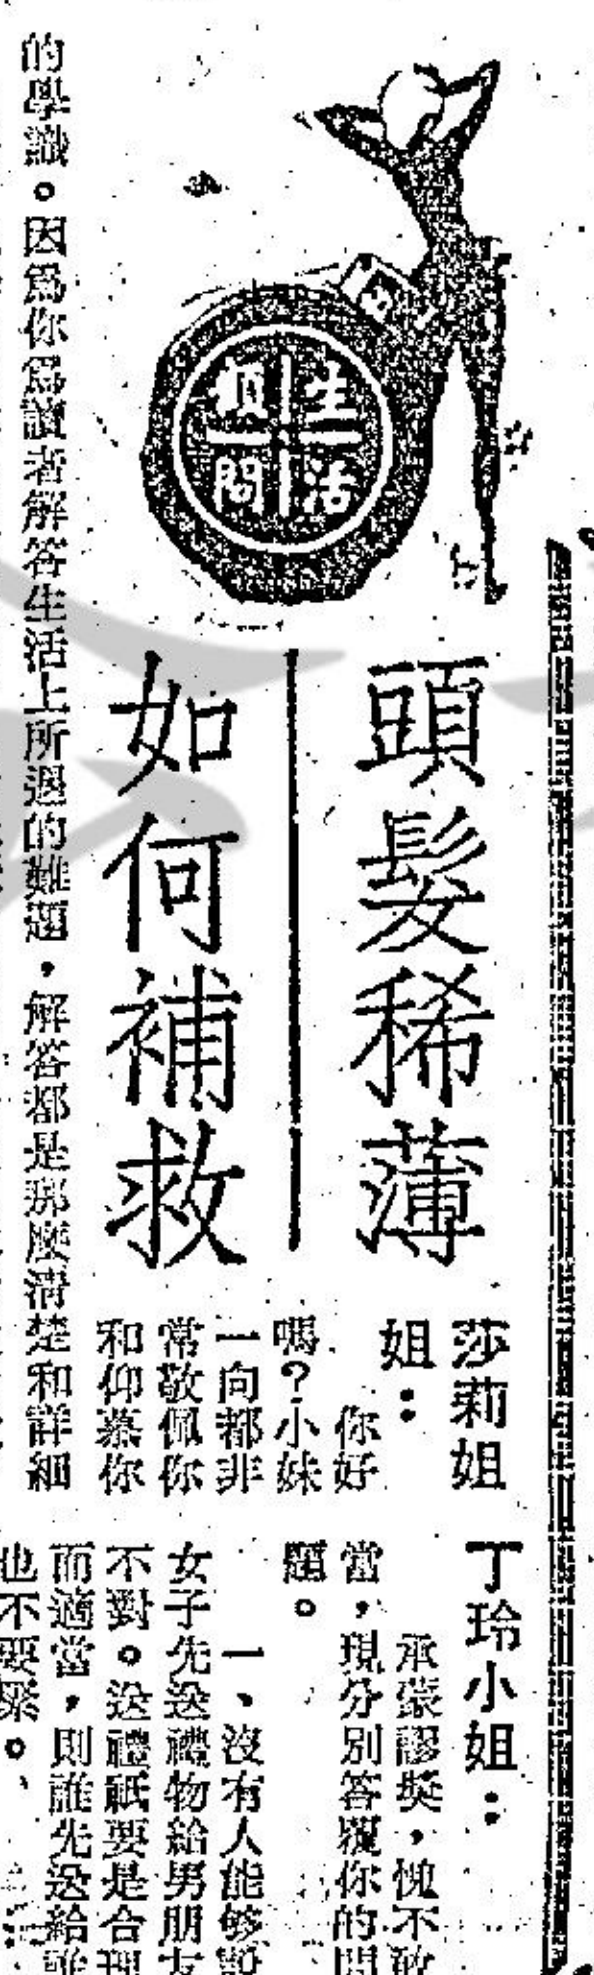 生活顧問
頭髮稀薄
如何補救
莎莉姐
姐：
你好
嗎？小妹
一向都非
常敬佩你
和仰慕你
的學識。因為你為讀者解答生活上所遇的難題，解答都是那麼清楚和詳細
丁玲小姐：
承蒙謬獎，愧不敢
當，現分別答覆你的問
題。
一、沒有人能够說
女子先送禮物給男朋友
不對。送禮祇要是合理
而適當，則誰先送給誰
也不要緊。